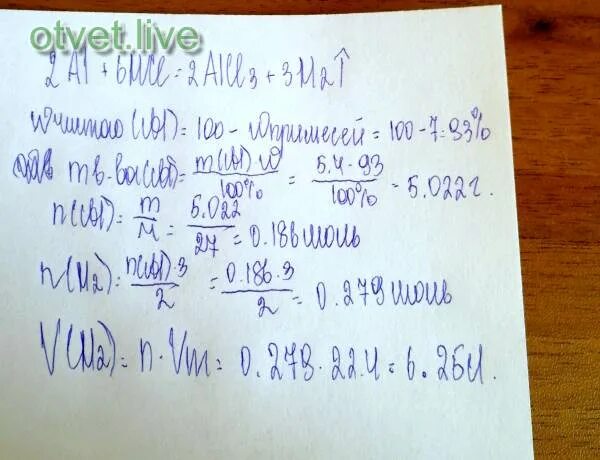 otvet.live
2Al + 6HCl = 2AlCl3 + 3H2↑
w чистого (Al) = 100 - w примесей = 100 - 7 = 93%
m в-ва (Al) = m(Al)·w / 100% = 5.4·93 / 100% = 5.022 г.
n(Al) = m / M = 5.022 / 27 = 0.186 моль
n(H2) = n(Al)·3 / 2 = 0.186·3 / 2 = 0.279 моль
V(H2) = n·Vm = 0.279·22.4 = 6.25 л.